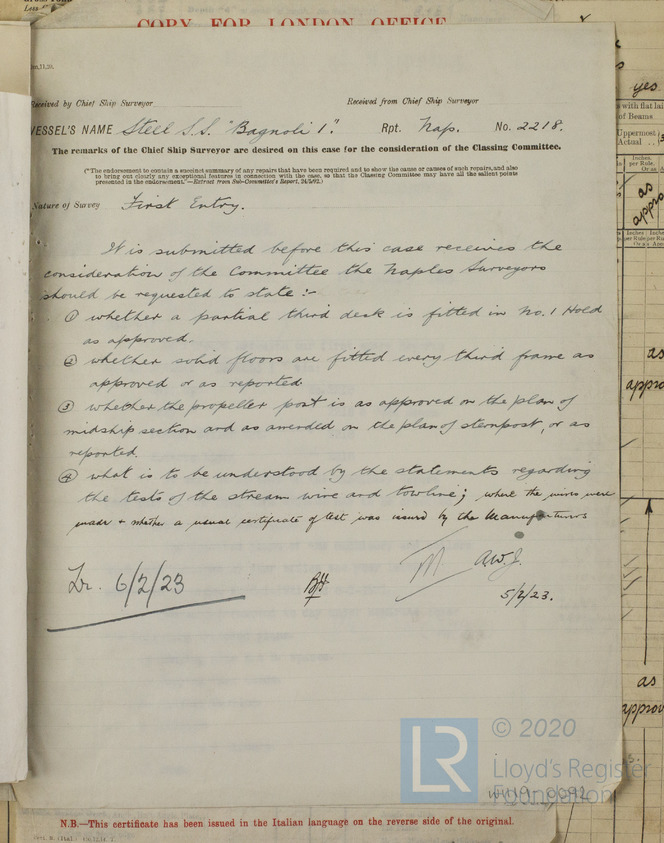 COPY FOR LONDON OFFICE
Received by Chief Ship Surveyor
Received from Chief Ship Surveyor
VESSEL'S NAME Steel S.S. "Bagnoli I". Rpt. Nap. No. 2218.
The remarks of the Chief Ship Surveyor are desired on this case for the consideration of the Classing Committee.
("The endorsement to contain a succinct summary of any repairs that have been required and to show the cause or causes of such repairs, and also
to bring out clearly any exceptional features in connection with the case, so that the Classing Committee may have all the salient points
presented in the endorsement."—Extract from Sub-Committee's Report, 24/5/02.)
Nature of Survey First Entry.
It is submitted before this case receives the
consideration of the Committee the Naples Surveyors
should be requested to state:-
① whether a partial third deck is fitted in No. 1 Hold
as approved.
② whether solid floors are fitted every third frame as
approved or as reported
③ whether the propeller post is as approved on the plan of
midship section and as amended on the plan of sternpost, or as
reported
④ what is to be understood by the statements regarding
the tests of the stream wire and towline; where the wires were
made & whether a usual certificate of test was issued by the Manufacturers
Lr. 6/2/23
A.W.J.
5/2/23.
© 2020
LR
Lloyd's Register
Foundation
W1119-0092
N.B.—This certificate has been issued in the Italian language on the reverse side of the original.
yes
s with flat lai
of Beams
Uppermost
Actual
Inches.
per Rule.
as
appro
as
appro
as
approv